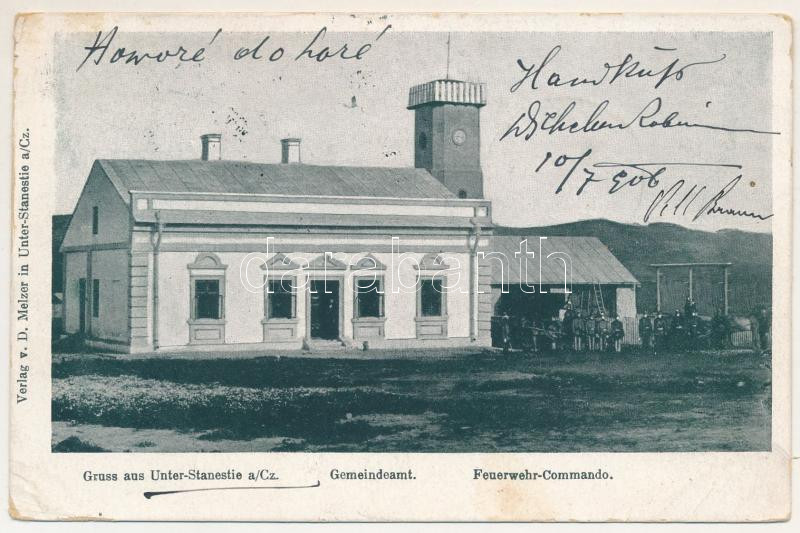 Howoré do horé
Handkuß
10/7 906
Verlag v. D. Melzer in Unter-Stanestie a/Cz.
darabanth.com
Gruss aus Unter-Stanestie a/Cz. Gemeindeamt. Feuerwehr-Commando.